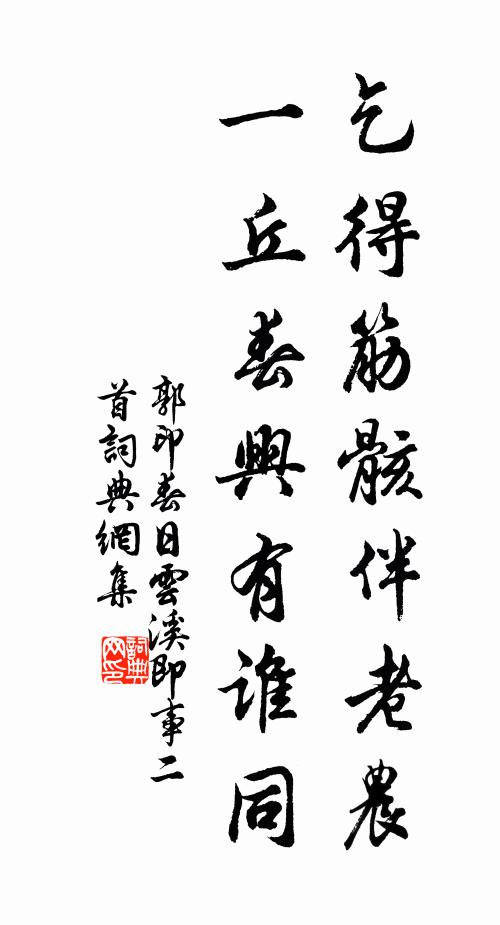 乞得筋骸伴老農
一丘春興有誰同
郭印春日雲溪即事二
首詞典網集
詞典網印